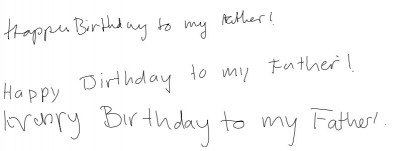 Happy Birthday to my Father!
Happy Birthday to my Father!
Birthday to my Father!